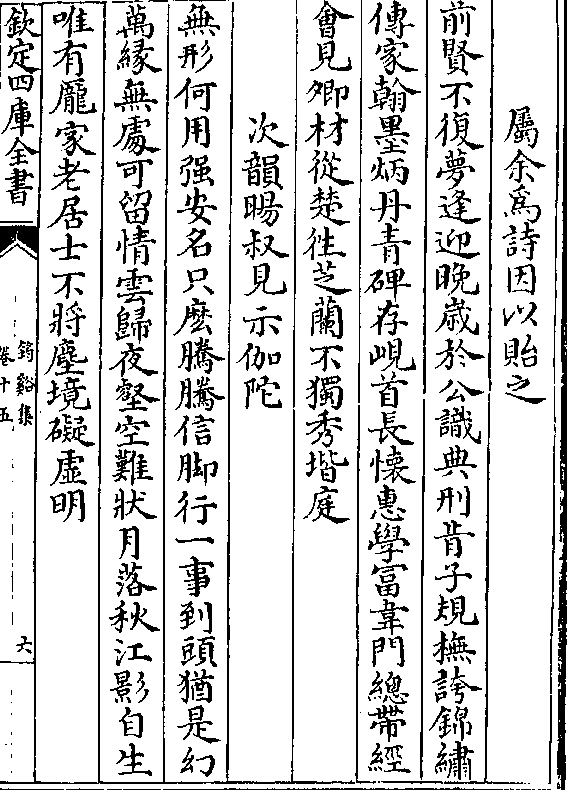 屬余爲詩因以貽之
前賢不復夢逢迎晚歳於公識典刑昔子規橅誇錦繡
傳家翰墨炳丹青碑存峴首長懷惠學富韋門總帶經
會見卿材從楚徃芝蘭不獨秀堦庭
次韻暘叔見示伽陀
無形何用强安名只麽騰騰信脚行一事到頭猶是幻
萬緣無處可留情雲歸夜壑空難狀月落秋江影自生
唯有龐家老居士不將塵境礙虛明
欽定四庫全書
筠谿集
卷十五
六